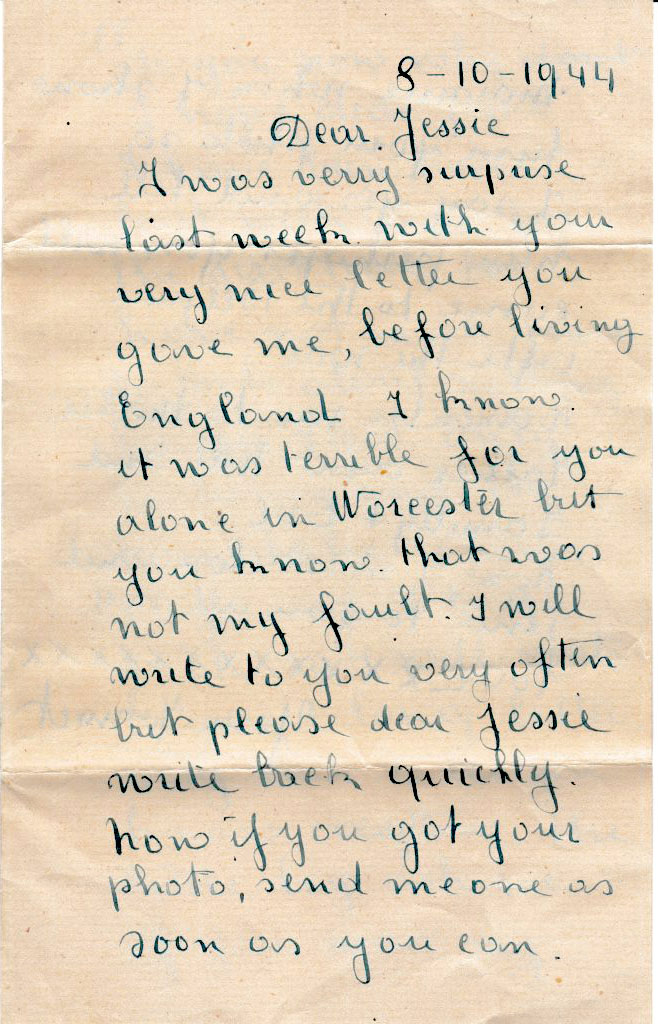 8-10-1944
Dear. Jessie
I was verry surprise
last week with your
very nice letter you
gave me, before living
England I know.
it was terrible for you
alone in Worcester but
you know. that was
not my fault. I will
write to you very often
but please dear Jessie
write back quickly.
now if you got your
photo, send me one as
soon as you can.